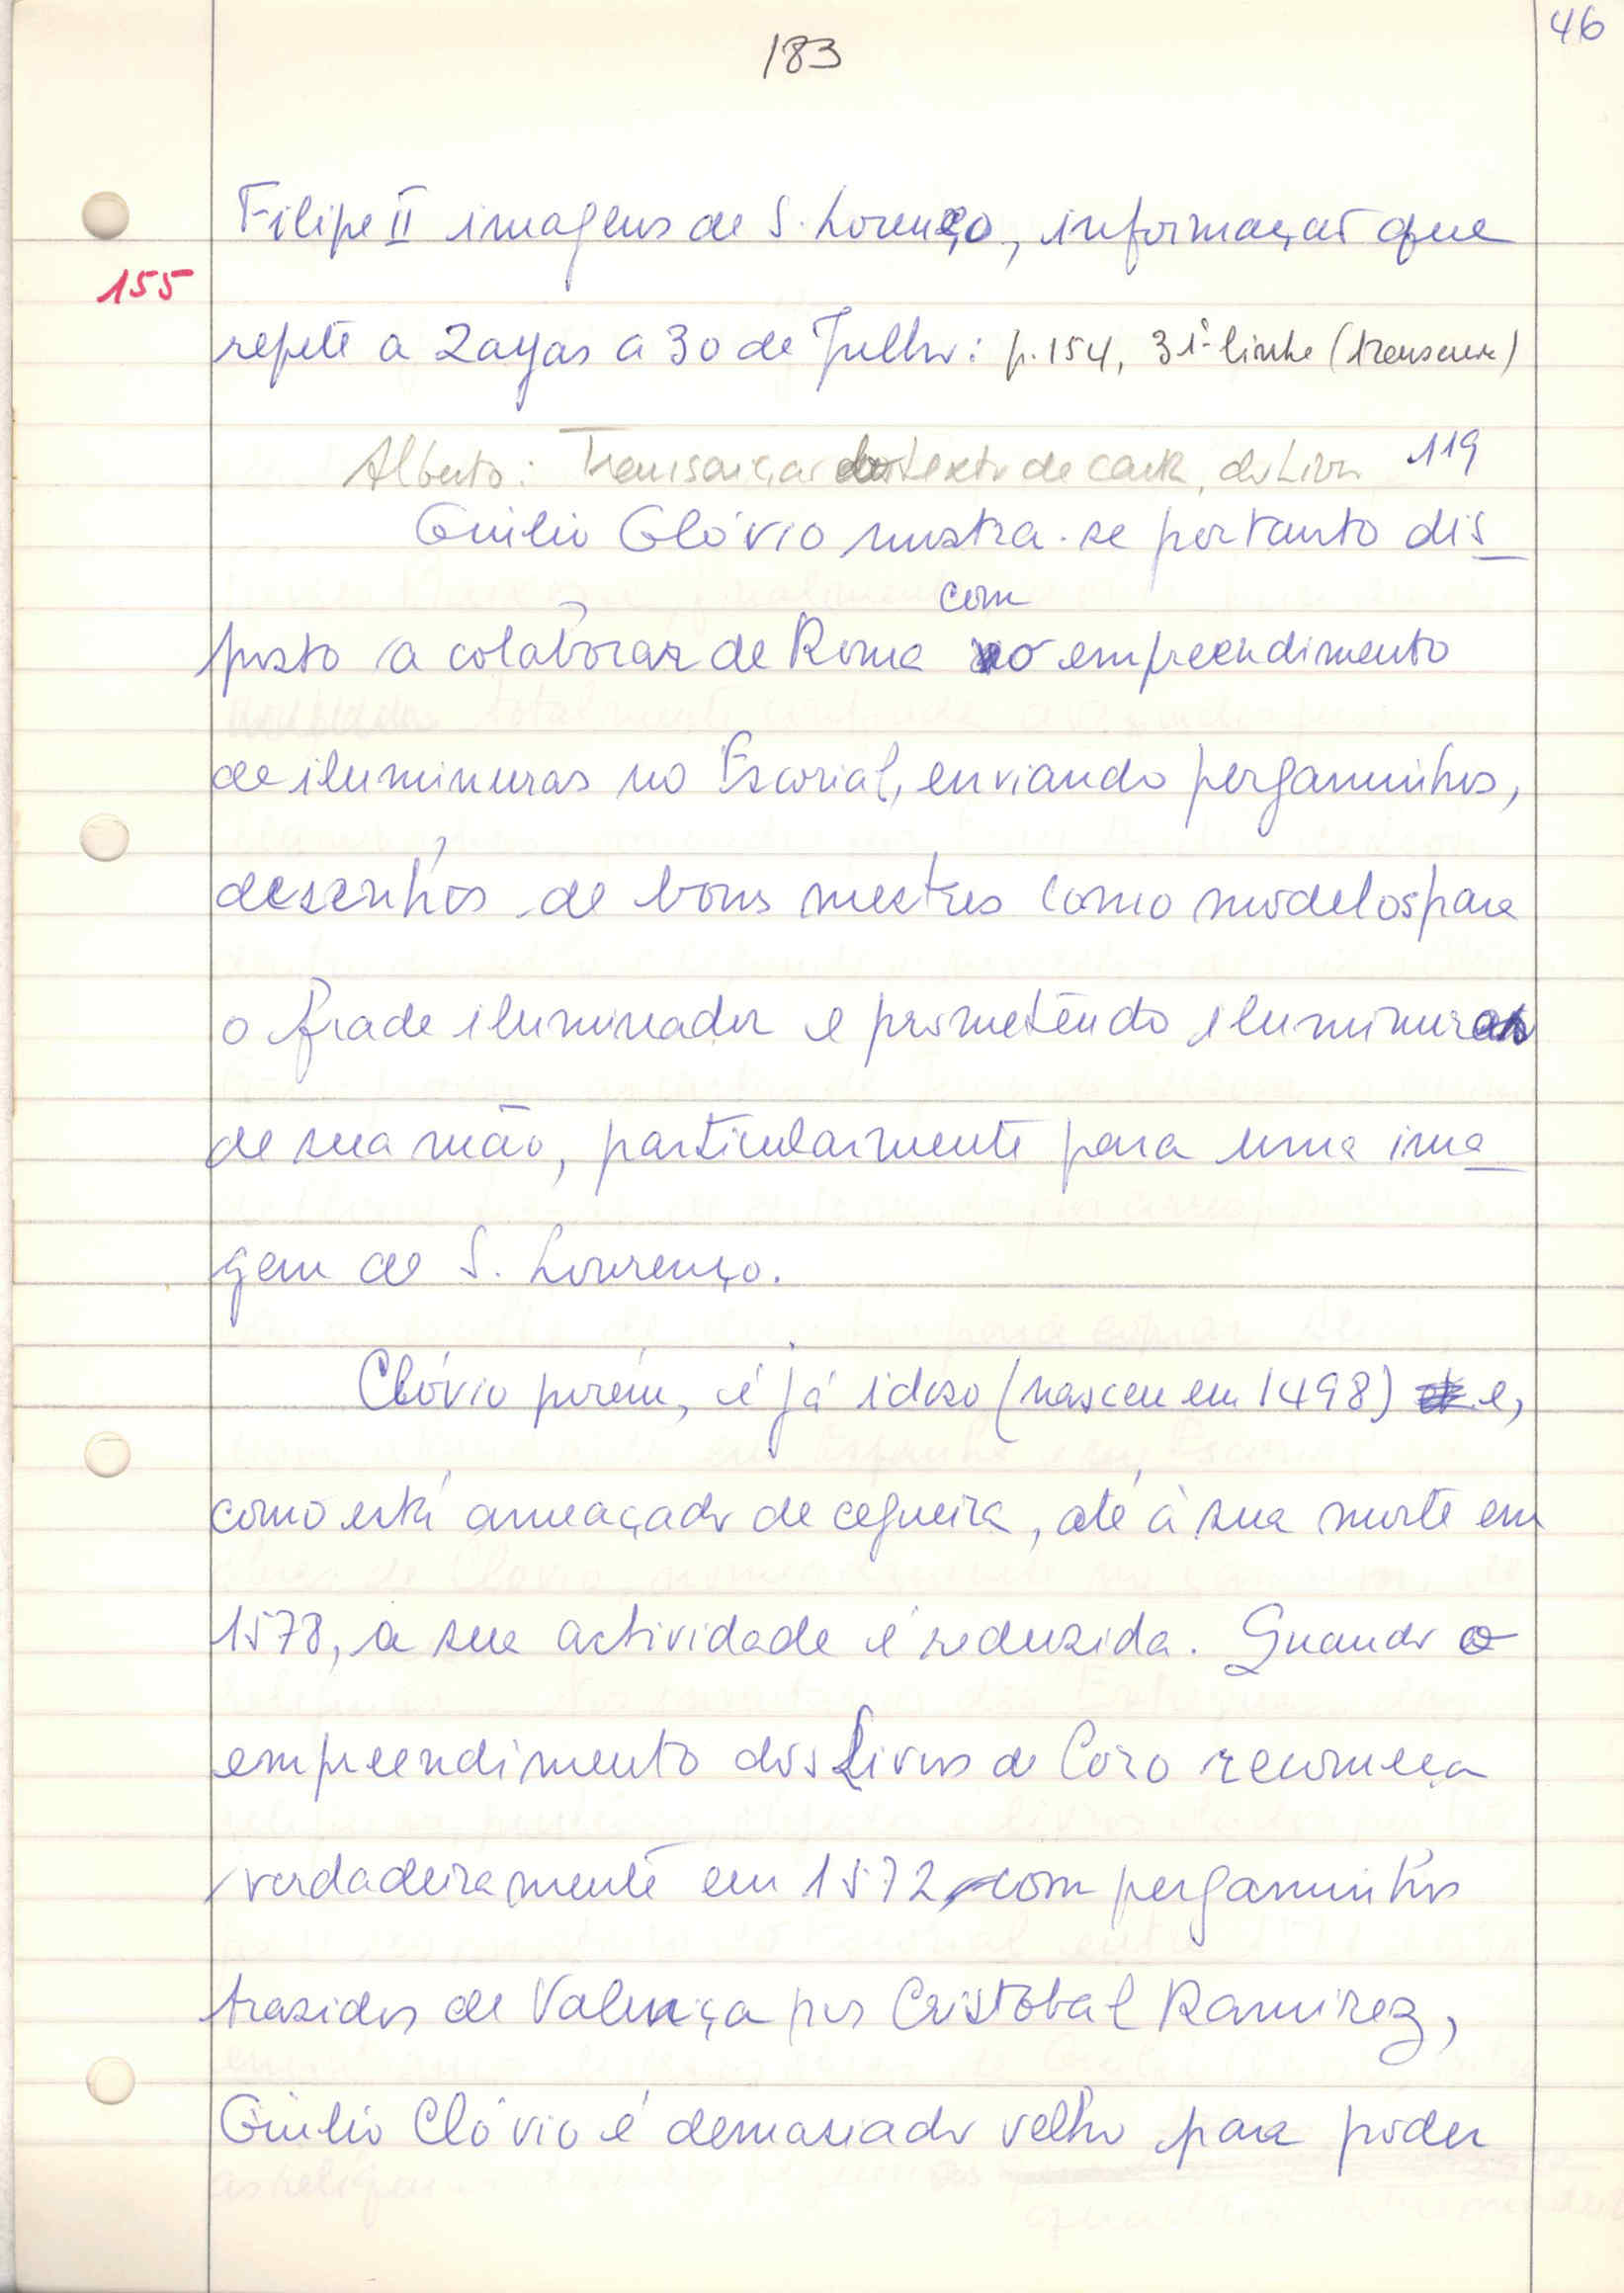 46
183
Filipe II imagens de S. Lorenço, informação que
155
repete a Zayas a 30 de Julho: p. 154, 3ª linha (transcrever)
Alberto: Transcrição do texto de carta, do Livro 119
Giulio Clóvio mostra-se portanto dis
com
posto a colaborar de Roma o empreendimento
de iluminuras no Escorial, enviando pergaminhos,
desenhos de bons mestres como modelos para
o frade iluminador e prometendo iluminuras
de sua mão, particularmente para uma ima
gem de S. Lourenço.
Clóvio porém, é já idoso (nasceu em 1498) e,
como está ameaçado de cegueira, até à sua morte em
1578, a sua actividade é reduzida. Quando o
empreendimento dos Livros de Coro recomeça
verdadeiramente em 1572, com pergaminhos
trazidos de Valença por Cristobal Ramirez,
Giulio Clóvio é demasiado velho para poder